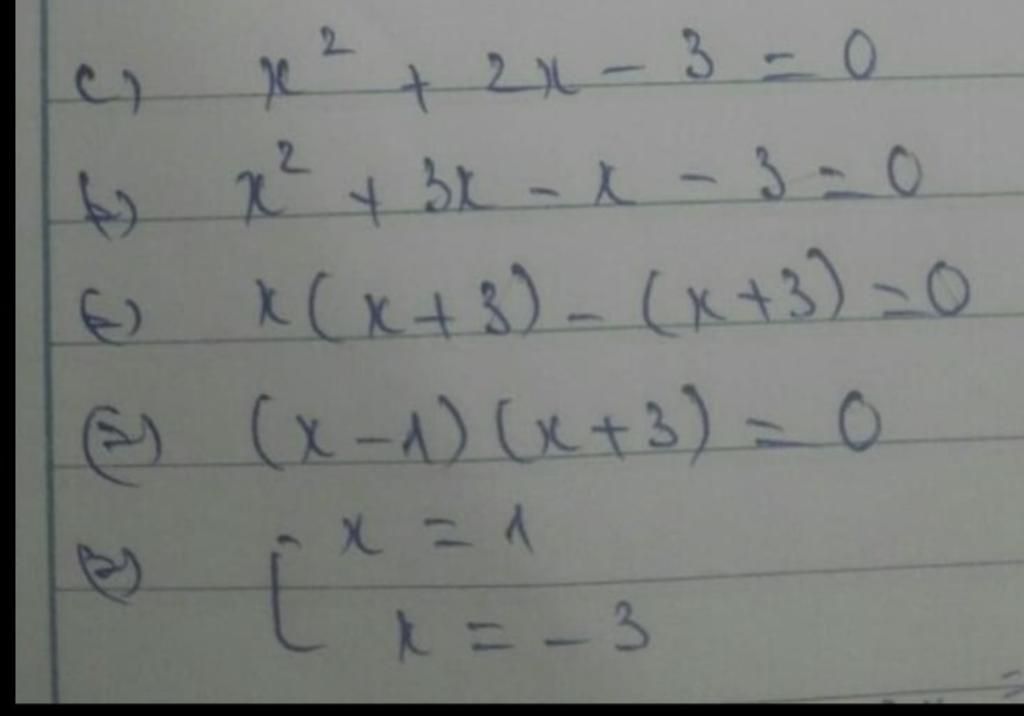 c) x² + 2x - 3 = 0
(=) x² + 3x - x - 3 = 0
(=) x(x+3) - (x+3) = 0
(=) (x-1)(x+3) = 0
(=) [ x = 1
x = -3